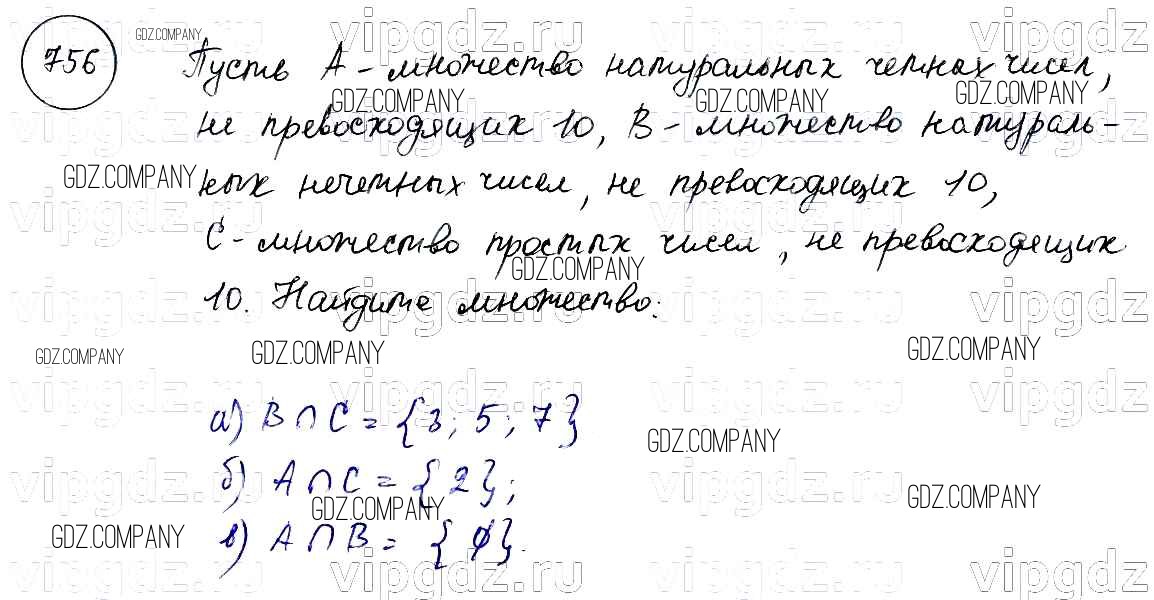 756
Пусть А - множество натуральных четных чисел,
не превосходящих 10, В - множество натураль-
ных нечетных чисел, не превосходящих 10,
С - множество простых чисел, не превосходящих
10. Найдите множество:
а) В ∩ С = {3; 5; 7}
б) А ∩ С = {2};
в) А ∩ В = {∅}.
GDZ.COMPANY
GDZ.COMPANY
GDZ.COMPANY
GDZ.COMPANY
GDZ.COMPANY
GDZ.COMPANY
GDZ.COMPANY
GDZ.COMPANY
GDZ.COMPANY
GDZ.COMPANY
GDZ.COMPANY
GDZ.COMPANY
GDZ.COMPANY
vipgdz.ru